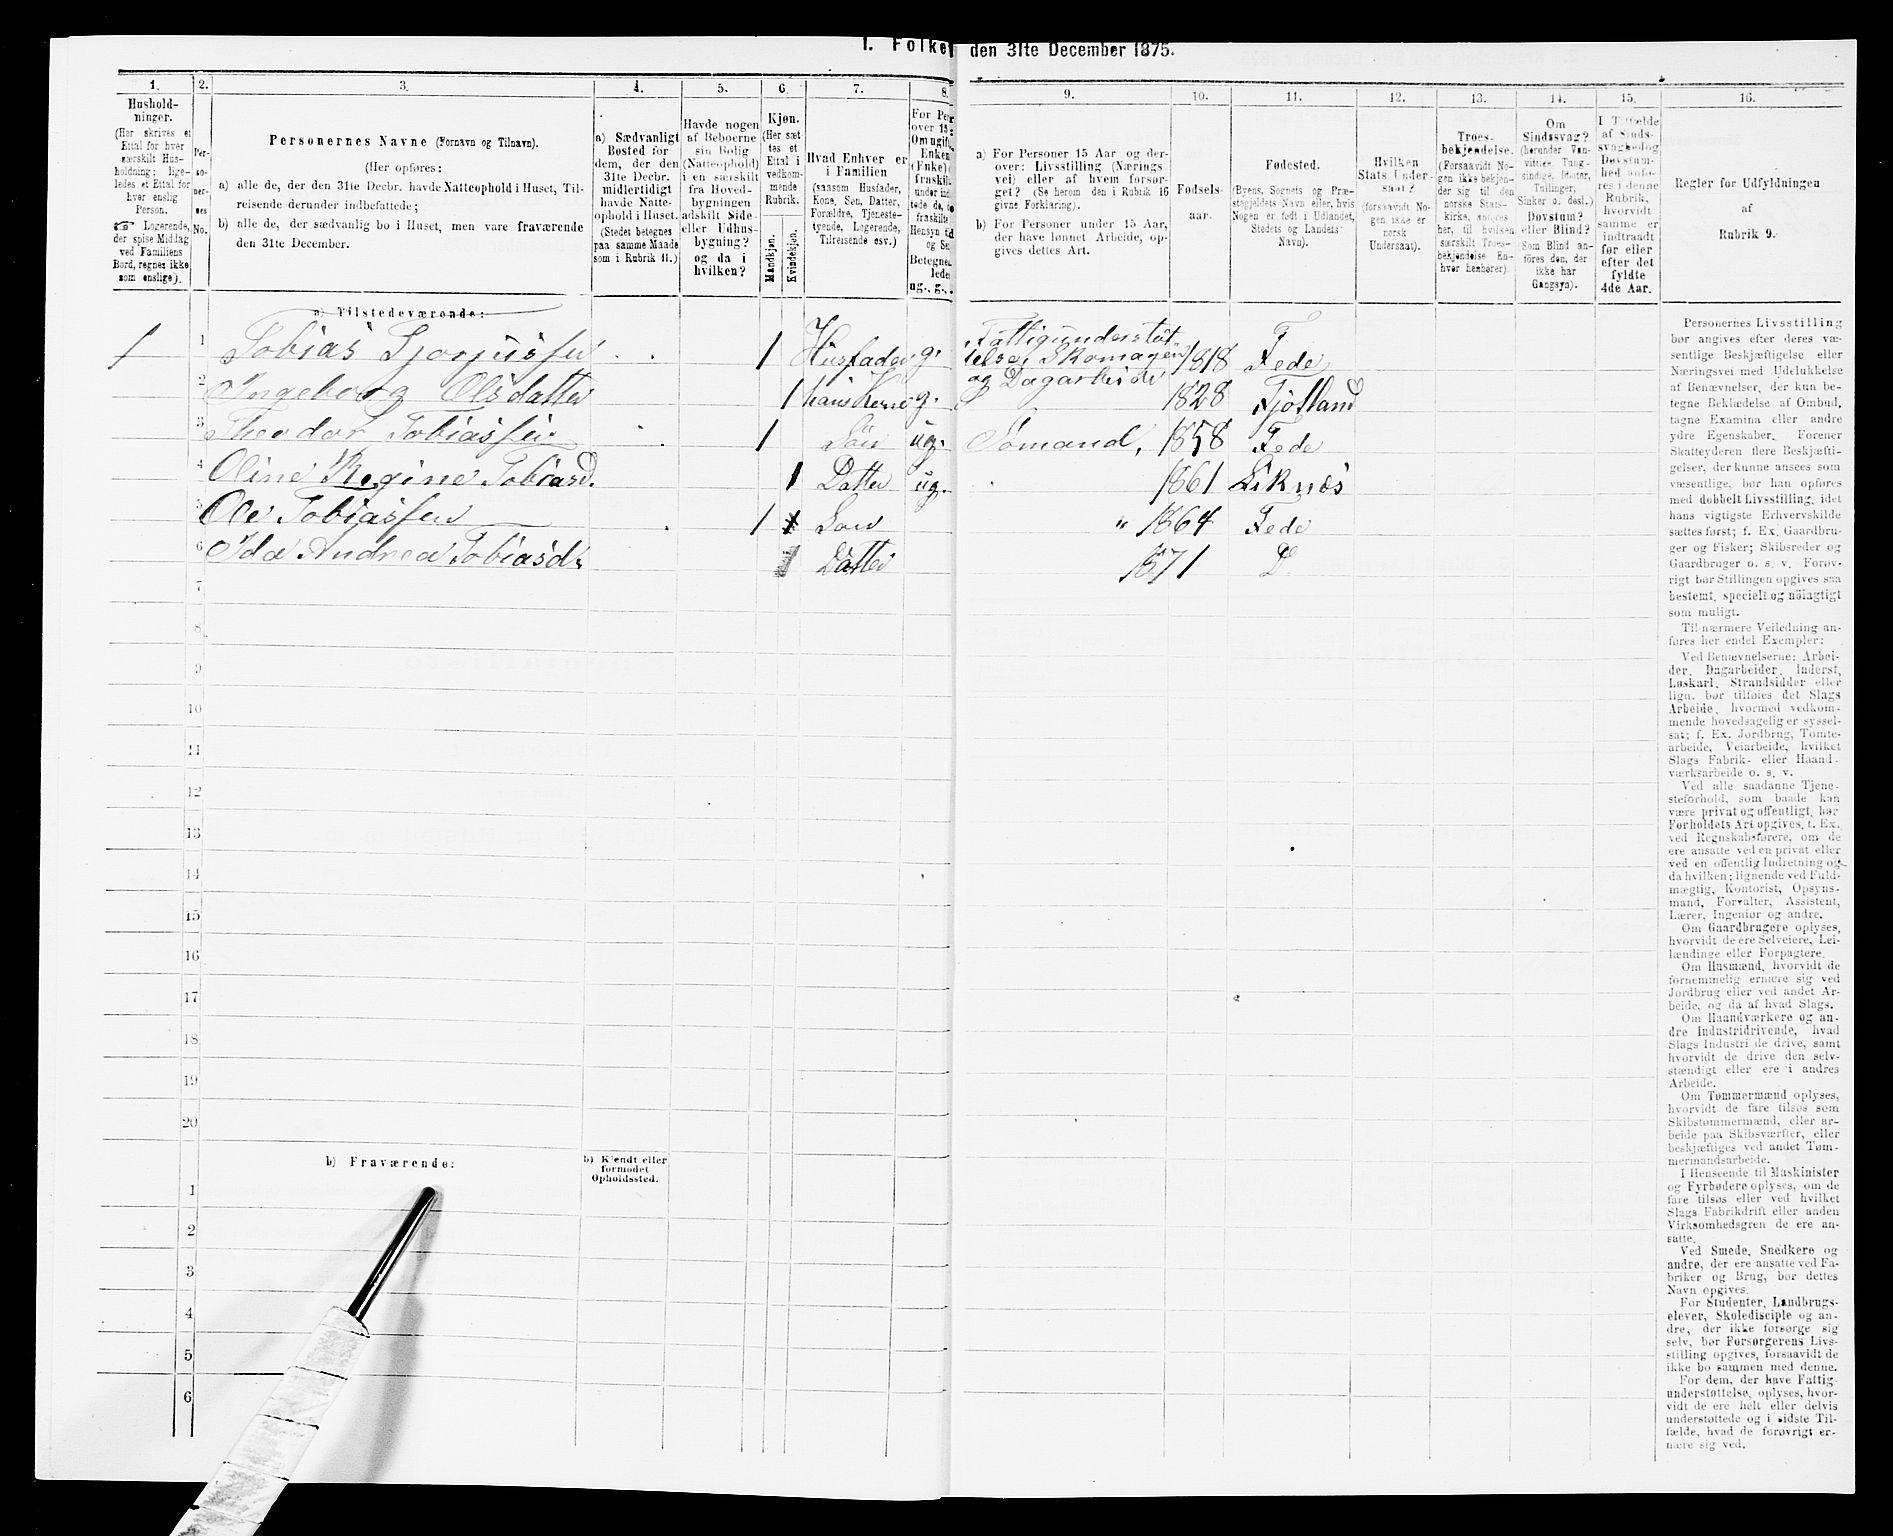 I. Folke den 31te December 1875.
1. 2. 3. 4. 5. 6. 7. 8. 9. 10. 11. 12. 13. 14. 15. 16.
Hushold-
ninger.
(Her skrives et
Ettal for hver
særskilt Hus-
holdning; lige-
ledes et Ettal for
hver enslig
Person.
☞ Logerende,
der spise Middag
ved Familiens
Bord, regnes ikke
som enslige).
Per-
so-
ner-
nes
No.
Personernes Navne (Fornavn og Tilnavn).
(Her opføres:
a) alle de, der den 31te Decbr. havde Natteophold i Huset, Til-
reisende derunder indbefattede;
b) alle de, der sædvanlig bo i Huset, men vare fraværende
den 31te December.
a) Sædvanligt
Bosted for
dem, der den
31te Decbr.
midlertidigt
havde Natte-
ophold i Huset.
(Stedet betegnes
paa samme Maade
som i Rubrik 11.)
Havde nogen
af Beboerne
sin Bolig
(Natteophold)
i en særskilt
fra Hoved-
bygningen
adskilt Side-
eller Udhus-
bygning?
og da i
hvilken?
Kjøn.
(Her sæt
tes et
Ettal i
vedkom-
mende
Rubrik.
Mandkjøn.
Kvindekjøn.
Hvad Enhver er
i Familien
(saasom Husfader,
Kone, Søn, Datter,
Forældre, Tjeneste-
tyende, Logerende,
Tilreisende osv.)
For Per
over 15
Om ugift,
Enken
(Enke)
fraskil
under ind
tede de,
fraskilte
Hensyn til
og Se
Betegne
lede
ug., g.,
a) For Personer 15 Aar og der-
over: Livsstilling (Nærings
vei) eller af hvem forsør-
get? (Se herom den i Rubrik 16
givne Forklaring).
b) For Personer under 15 Aar,
der have lønnet Arbeide, op-
gives dettes Art.
Fødsels-
aar.
Fødested.
(Byens, Sognets og Præ-
stegjeldets Navn eller, hvis
Nogen er født i Udlandet,
Stedets og Landets
Navn).
Hvilken
Stats Under-
saat?
(forsaavidt No-
gen ikke er
norsk
Undersaat).
Troes-
bekjendelse.
(Forsaavidt No-
gen ikke bekjen-
der sig til den
norske Stats-
kirke, anføres
her, til hvilken
særskilt Troes-
bekjendelse En-
hver henhører).
Om
Sindssvag?
(herunder Van-
vittige, Tung-
sindige, Idioter,
Tullinger,
Sinker o. desl.)
Døvstum?
eller Blind?
(Som Blind an-
føres den, der
ikke har
Gangsyn).
I Tilfælde
af Sinds-
svaghed og
Døvstum-
hed anfø-
res i denne
Rubrik,
hvorvidt
samme er
indtraadt
før eller
efter det
fyldte
4de Aar.
Regler for Udfyldningen
af
Rubrik 9.
a) Tilstedeværende:
1 1 Tobias Sjorjussen 1 Husfader g. Fattigunderstøt
telse, Skomager
og Dagarbeide 1818 Fede
2 Ingeborg Olsdatter 1 hans Kone g. 1828 Fjotland
3 Theodor Tobiassen 1 Søn ug. Sømand, 1858 Fede
4 Oline Regine Tobiasd. 1 Datter ug. 1861 Liknes
5 Ole Tobiassen 1 Søn " 1864 Fede
6 Ida Andrea Tobiasd. 1 Datter 1871 D
7
8
9
10
11
12
13
14
15
16
17
18
19
20
b) Fraværende:
b) Kjendt eller
formodet
Opholdssted.
1
2
3
4
5
6
Personernes Livsstilling
bør angives efter deres væ-
sentlige Beskjæftigelse eller
Næringsvei med Udelukkelse
af Benævnelser, der kun be-
tegne Beklædelse af Ombud,
tagne Examina eller andre
ydre Egenskaber. Forener
Skatteyderen flere Beskjæfti-
gelser, der kunne ansees som
væsentlige, bør han opføres
med dobbelt Livsstilling, idet
hans vigtigste Erhvervskilde
sættes først; f. Ex. Gaardbru-
ger og Fisker; Skibsreder og
Gaardbruger o. s. v. Forøv-
rigt bør Stillingen opgives saa
bestemt, specielt og nöiagtigt
som muligt.
Til nærmere Veiledning an-
føres her endel Exempler:
Ved Benævnelserne: Arbei-
der, Dagarbeider, Inderst,
Løskarl, Strandsidder eller
lign. bør tilføies det Slags
Arbeide, hvormed vedkom-
mende hovedsagelig er syssel-
sat; f. Ex. Jordbrug, Tomte-
arbeide, Veiarbeide, hvilket
Slags Fabrik- eller Haand-
værksarbeide o. s. v.
Ved alle saadanne Tjene-
steforhold, som baade kan
være privat og offentligt, bør
Forholdets Art opgives, f. Ex.
ved Regnskabsførere, om de
ere ansatte ved en privat eller
ved en offentlig Indretning og
da hvilken; lignende ved Fuld-
mægtig, Kontorist, Opsyns-
mand, Forvalter, Assistent,
Lærer, Ingeniør og andre.
Om Gaardbrugere oplyses,
hvorvidt de ere Selveiere, Lei-
lændinge eller Forpagtere.
Om Husmænd, hvorvidt de
fornemmelig ernære sig ved
Jordbrug eller ved andet Ar-
beide, og da af hvad Slags.
Om Haandværkere og an-
dre Industridrivende, hvad
Slags Industri de drive, samt
hvorvidt de drive den selv-
stændigt eller ere i andres
Arbeide.
Om Tømmermænd oplyses,
hvorvidt de fare tilsøs som
Skibstømmermænd, eller ar-
beide paa Skibsværfter, eller
beskjæftiges ved andet Tøm-
mermandsarbeide.
I Henseende til Maskinister
og Fyrbødere oplyses, om de
fare tilsøs eller ved hvilket
Slags Fabrikdrift eller anden
Virksomhedsgren de ere an-
satte.
Ved Smede, Snedkere og
andre, der ere ansatte ved Fa-
briker og Brug, bør dettes
Navn opgives.
For Studenter, Landbrugs-
elever, Skoledisciple og an-
dre, der ikke forsørge sig
selv, bør Forsørgerens Livs-
stilling opgives, forsaavidt de
ikke bo sammen med denne.
For dem, der have Fattig-
understøttelse, oplyses, hvor-
vidt de ere helt eller delvis
understøttede og i sidste Til-
fælde, hvad de forøvrigt er-
nære sig ved.